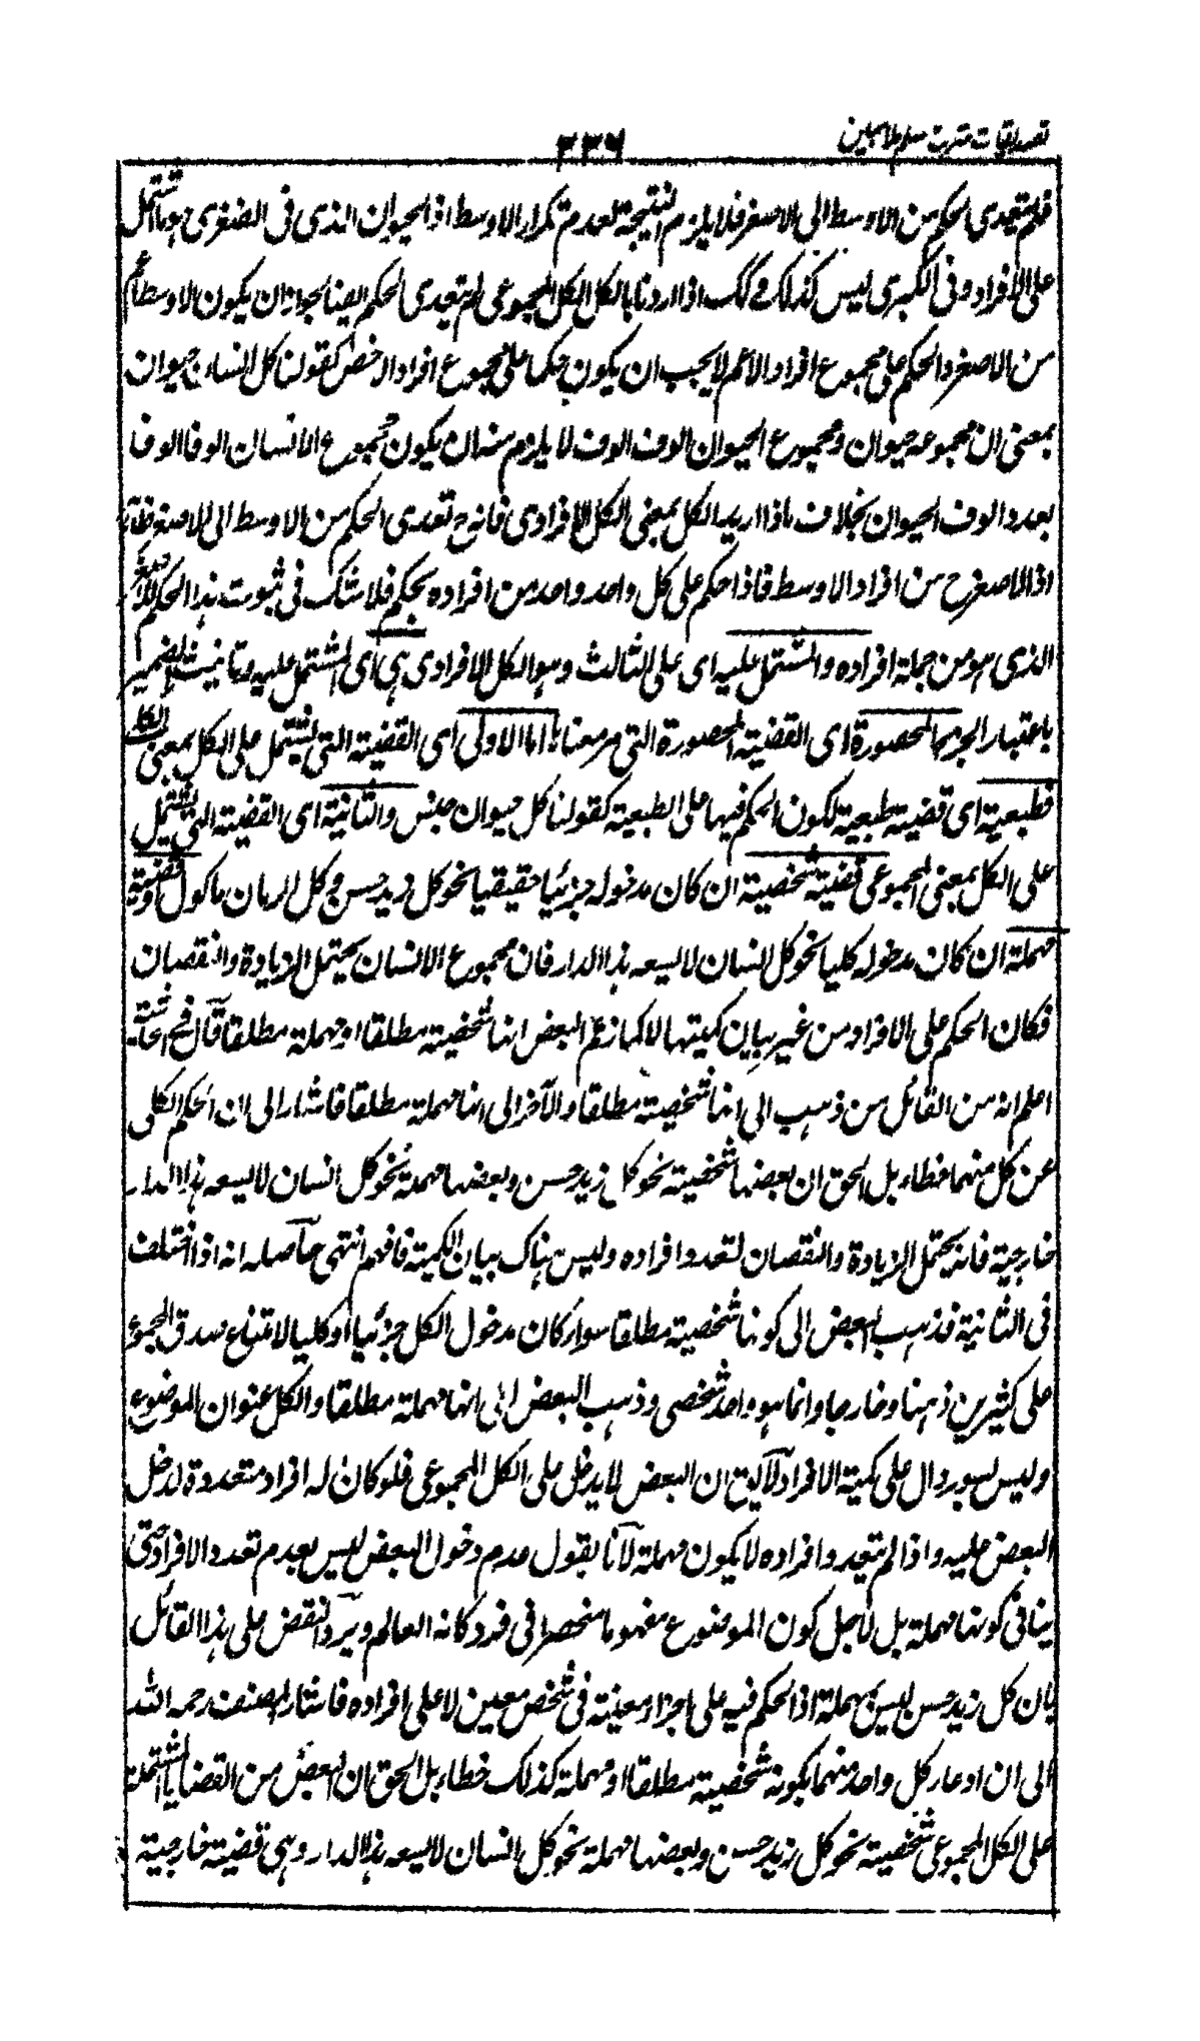 تصدیقات مترتبہ سلم ملا مبین
۳۳۶
فلم یتعدی الحکم من الاوسط الی الاصغر فلا یلزم النتیجۃ لعدم تکرار الاوسط اذ الحیوان الذی فی الصغری ہو ما اشتمل
علی الافراد و فی الکبری لیس کذلک و کک اذا اردنا بالکل الکل المجموعی لم یتعدی الحکم ایضا لجواز ان یکون الاوسط اعم
من الاصغر و الحکم علی مجموع افراد الاعم لا یجب ان یکون حکما علی مجموع افراد الاخص کقولنا کل انسان حیوان
بمعنی ان مجموعہ حیوان و مجموع الحیوان الوف الوف لا یلزم منہ ان یکون مجموع الانسان الوفا الوفا
بعدد الوف الحیوان بخلاف ما اذا ارید الکل بمعنی الکل الافرادی فانہ ح تعدی الحکم من الاوسط الی الاصغر ظاہر
اذ الاصغر ح من افراد الاوسط فاذا حکم علی کل واحد واحد من افرادہ بحکم فلا شک فی ثبوت ہذا الحکم للاصغر
الذی ہو من جملۃ افرادہ والمشتمل علیہ ای علی الثالث وہو الکل الافرادی ہی ای المشتمل علیہ وتانیث الضمیر
باعتبار الخبر المحصورۃ ای القضیۃ المحصورۃ التی مر معناہا اما الاولی ای القضیۃ التی تشتمل علی الکل بمعنی الکلی
فطبعیۃ ای قضیۃ طبعیۃ لکون الحکم فیہا علی الطبعیۃ کقولنا کل حیوان جنس والثانیۃ ای القضیۃ التی تشتمل
علی الکل بمعنی المجموعی قضیۃ شخصیۃ ان کان مدخولہ جزئیا حقیقیا نحو کل زید حسن و کل الرمان ماکول او قضیۃ
مہملۃ ان کان مدخولہ کلیا نحو کل انسان لا یسعہ ہذا الدار فان مجموع الانسان یحتمل الزیادۃ والنقصان
فکان الحکم علی الافراد من غیر بیان کمیتہا لا کما زعم البعض انہا شخصیۃ مطلقا او مہملۃ مطلقا قال فی الحاشیۃ
اعلم انہ من القائل من ذہب الی انہا شخصیۃ مطلقا والآخر الی انہا مہملۃ مطلقا فاشار الی ان الحکم الکلی
عن کل منہما خطاء بل الحق ان بعضہا شخصیۃ نحو کل زید حسن و بعضہا مہملۃ نحو کل انسان لا یسعہ ہذا الدار
خارجیۃ فانہ یحتمل الزیادۃ والنقصان لتعدد افرادہ ولیس ہناک بیان الکمیۃ فافہم انتہی حاصلہ انہ اذا اختلف
فی الثانیۃ فذہب البعض الی کونہا شخصیۃ مطلقا سواء کان مدخول الکل جزئیا او کلیا لامتناع صدق المجموع
علی کثیرین ذہنا و خارجا وانما ہو واحد شخصی و ذہب البعض الی انہا مہملۃ مطلقا والکل عنوان الموضوع
و لیس بسور دال علی کمیۃ الافراد لا یق ان البعض لا یدخل علی الکل المجموعی فلو کان لہ افراد متعددۃ لدخل
البعض علیہ واذا لم یتعدد افرادہ لا یکون مہملۃ لانا نقول عدم دخول البعض لیس بعدم تعدد الافراد حتی
ینافی کونہا مہملۃ بل لاجل کون الموضوع مفہوما منحصرا فی فرد کانہ العالم و یرد النقض علی ہذا القائل
بان کل زید حسن لیس بمہملۃ اذ الحکم فیہ علی اجزاء معینۃ فی شخص معین لا علی افرادہ فاشار المصنف رحمہ اللہ
الی ان ادعاء کل واحد منہما بکونہ شخصیۃ مطلقا او مہملۃ کذلک خطاء بل الحق ان البعض من القضایا المشتملۃ
علی الکل المجموعی شخصیۃ نحو کل زید حسن و بعضہا مہملۃ نحو کل انسان لا یسعہ ہذا الدار وہی قضیۃ خارجیۃ